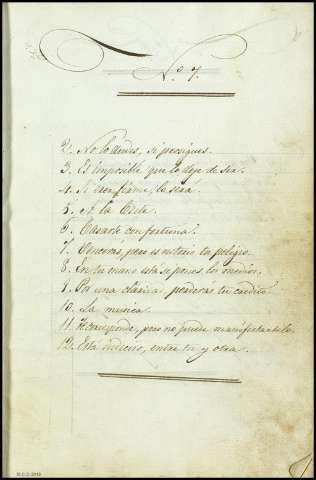 No. 7.
2. No lo dudes, si persigues.
3. Es imposible que lo deje de ser.
4. Si eres firme, la será.
5. A la
6. Casarte con fortuna.
7. Vencerás, pero es notorio tu peligro.
8. En tu mano está si pones los medios.
9. Por una perderás tu crédito
10. La musica.
11. Te corresponde, pero no puede manifestartelo.
12. Está indeciso, entre tu y otra.